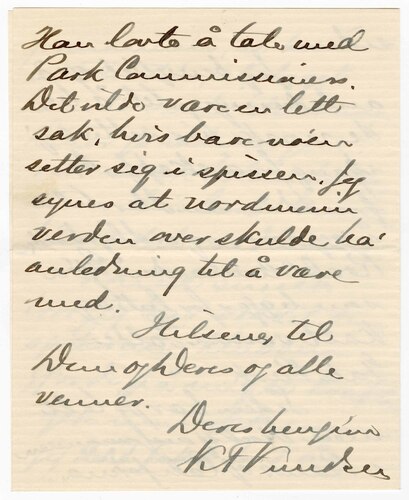 Han lovte å tale med
Park Commissioners.
Det vilde være en lett
sak, hvis bare noen
setter sig i spissen. Jeg
synes at nordmenn
verden over skulde ha
anledning til å være
med.
Hilsener til
Dem og Deres og alle
venner.
Deres hengivne
Knudsen